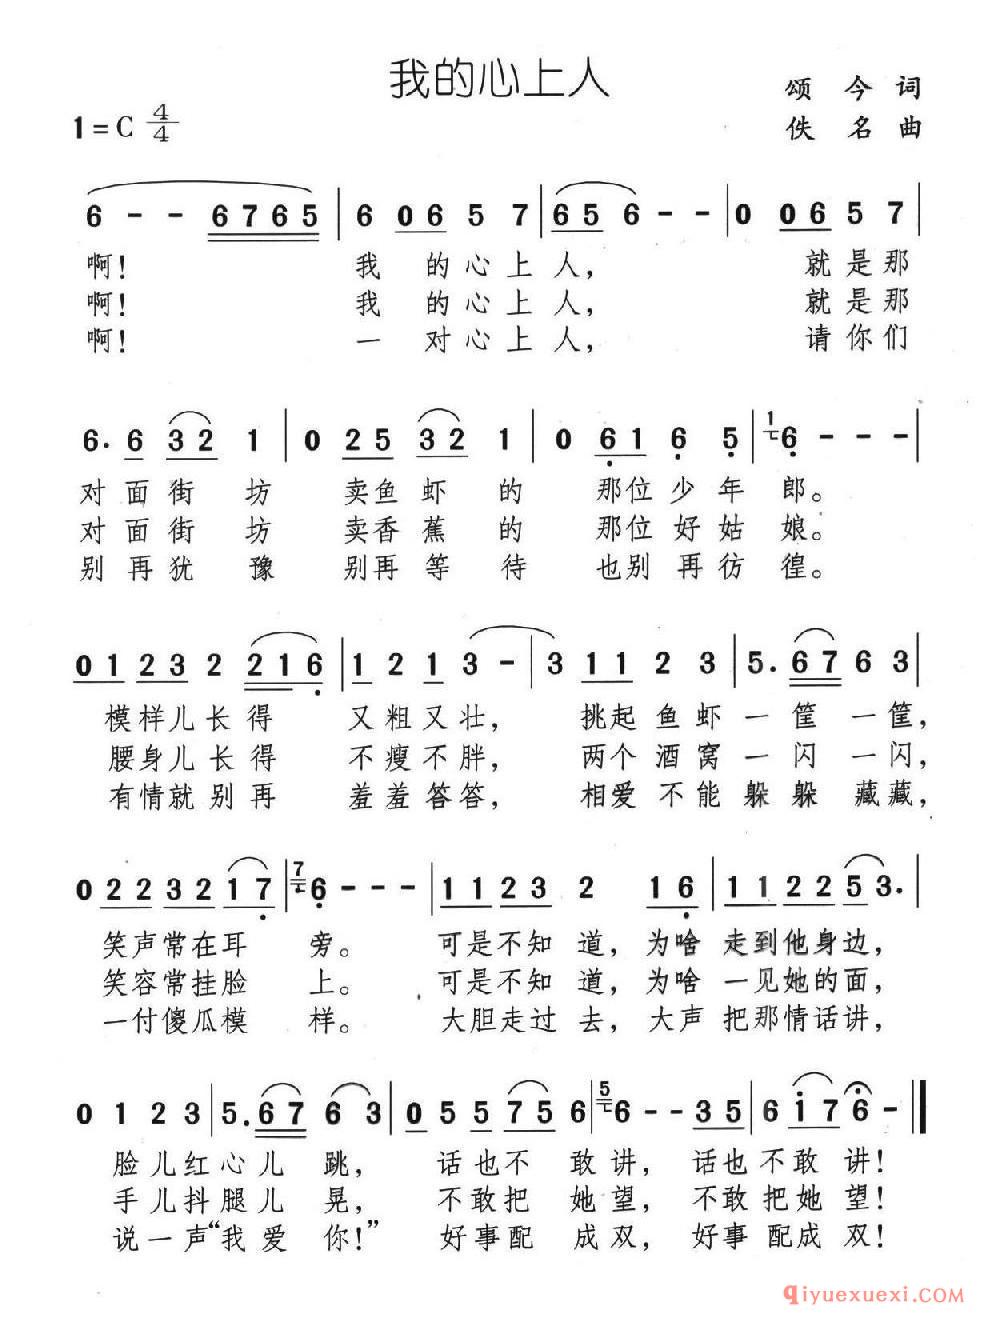 我的心上人
颂今词
1=C 4/4
佚名曲
6 - - 6765 | 6 06 5 7 | 65 6 - - | 0 06 5 7 |
啊! 我的心上人, 就是那
啊! 我的心上人, 就是那
啊! 一对心上人, 请你们
6. 6 32 1 | 0 25 32 1 | 0 61 6 5 | 1 6 - - - |
对面街坊 卖鱼虾的 那位少年郎。
对面街坊 卖香蕉的 那位好姑娘。
别再犹豫 别再等待 也别再彷徨。
01 23 2 216 | 1 2 1 3 - | 3 11 2 3 | 5. 67 6 3 |
模样儿长得 又粗又壮, 挑起鱼虾一筐一筐,
腰身儿长得 不瘦不胖, 两个酒窝一闪一闪,
有情就别再 羞羞答答, 相爱不能躲躲藏藏,
0 22 32 17 | 7 6 - - - | 11 23 2 16 | 11 22 5 3. |
笑声常在耳旁。 可是不知道, 为啥走到他身边,
笑容常挂脸上。 可是不知道, 为啥一见她的面,
一付傻瓜模样。 大胆走过去, 大声把那情话讲,
0 1 2 3 | 5. 67 6 3 | 0 5 5 75 6 | 5 6 - - 35 | 6 i7 6 - ||
脸儿红心儿跳, 话也不敢讲, 话也不敢讲!
手儿抖腿儿晃, 不敢把她望, 不敢把她望!
说一声“我爱你!” 好事配成双, 好事配成双!
qiyuexuexi.com